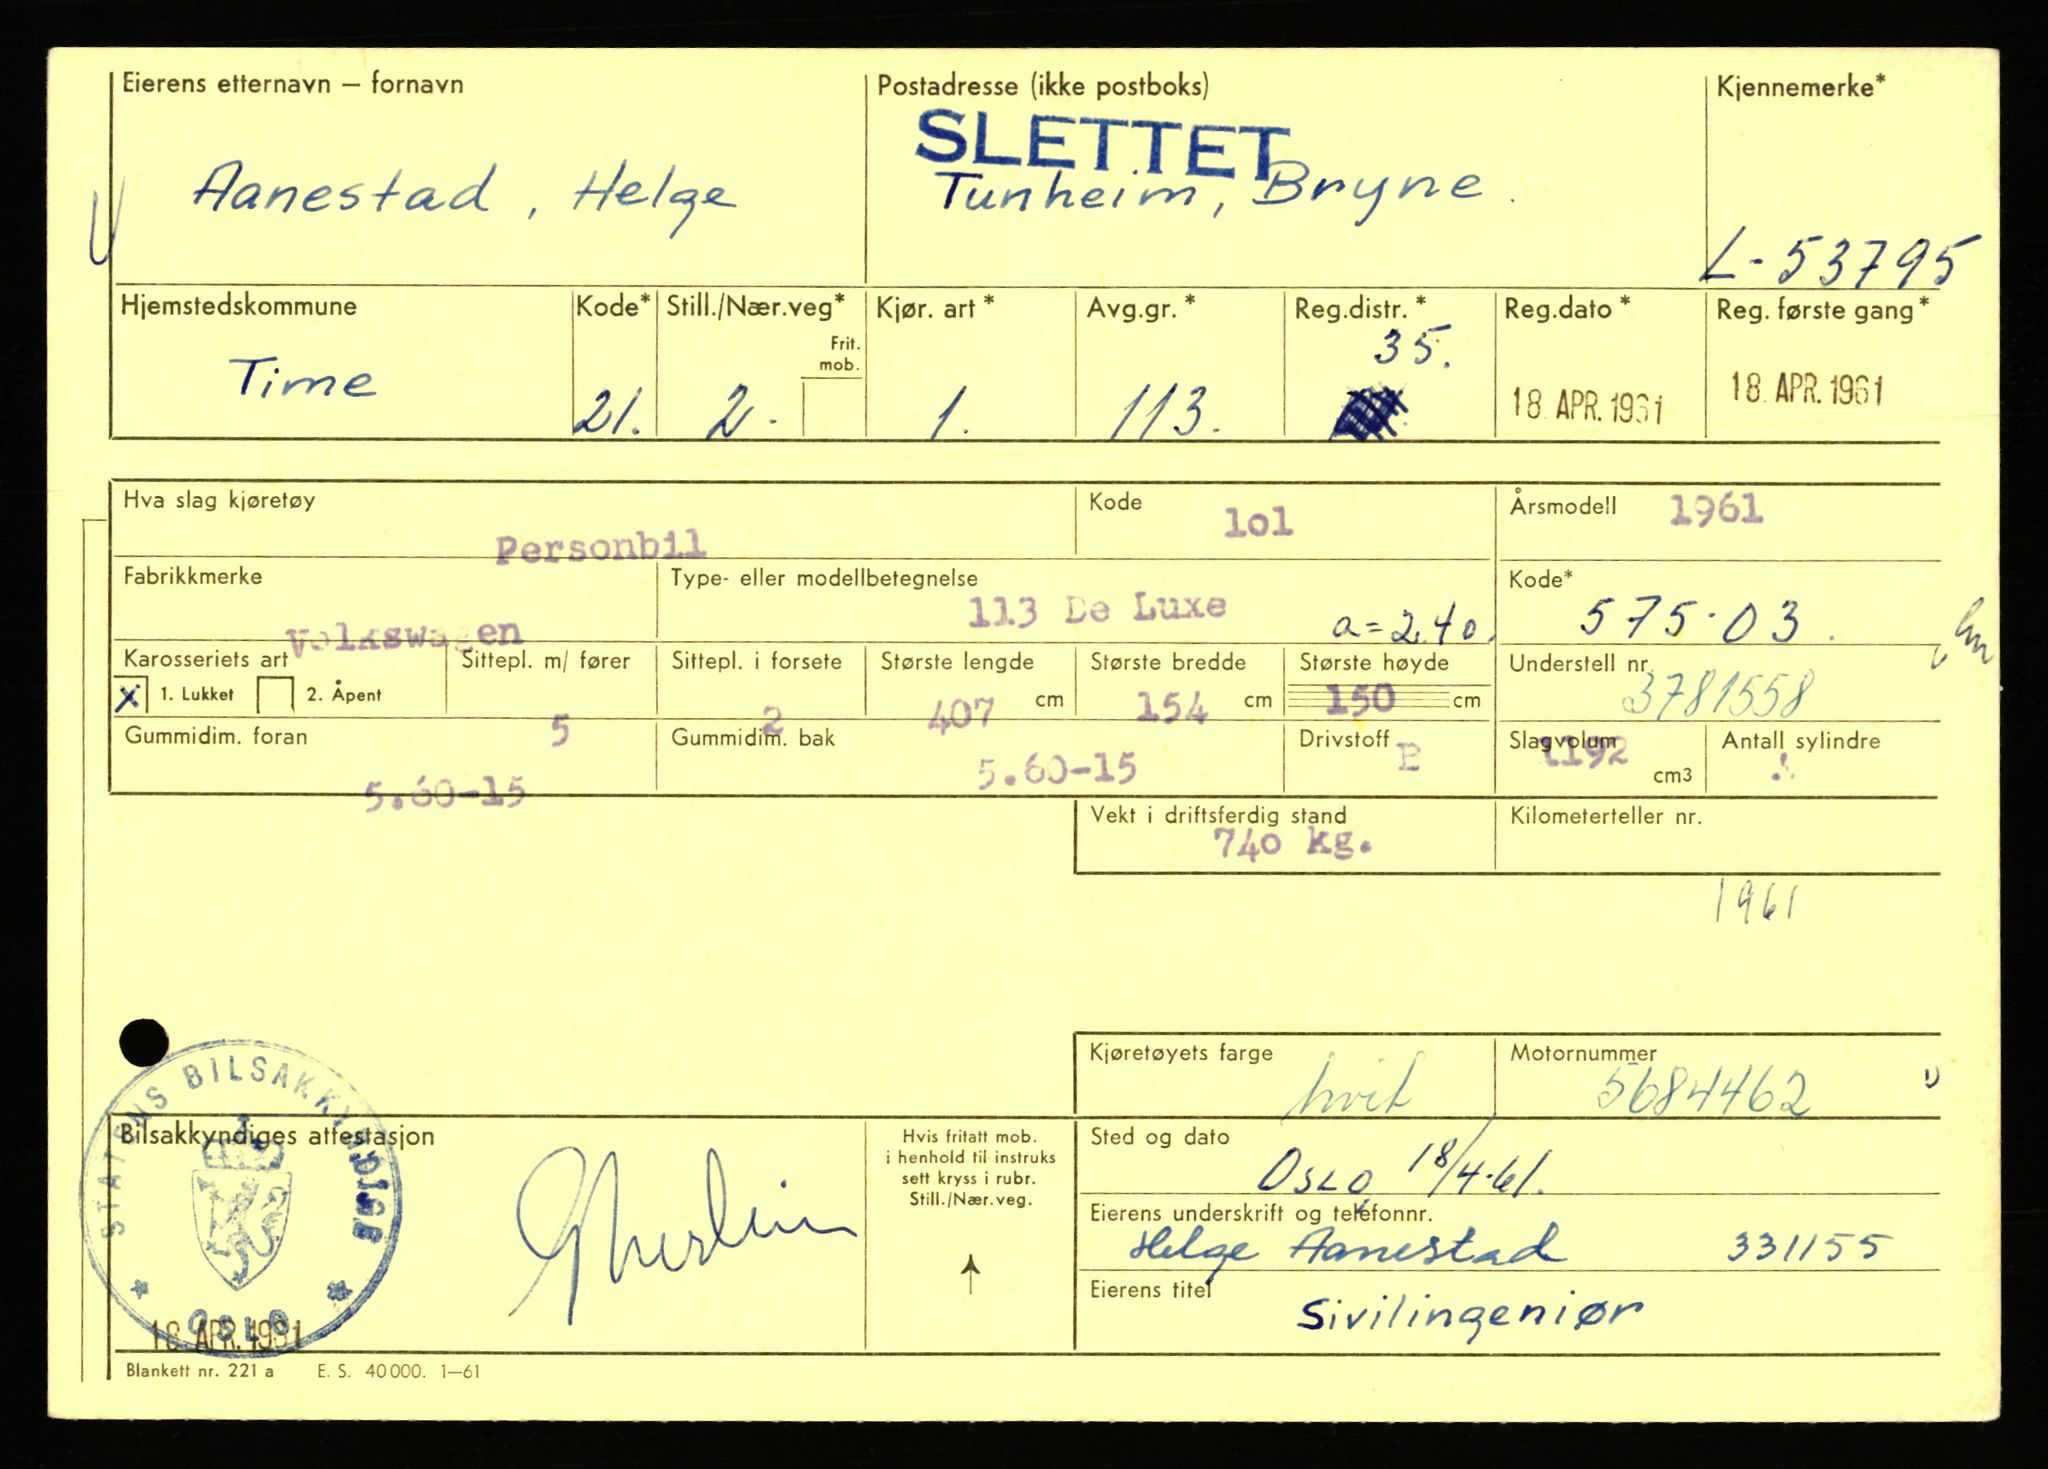 Eierens etternavn — fornavn
Postadresse (ikke postboks)
Kjennemerke*
SLETTET
Aanestad, Helge
Tunheim, Bryne.
L-53795
Hjemstedskommune
Kode*
Still./Nær.veg*
Kjør. art*
Avg.gr.*
Reg.distr.*
Reg.dato*
Reg. første gang*
Frit. mob.
35.
Time
21.
2.
1.
113.
18 APR. 1961
18 APR. 1961
Hva slag kjøretøy
Personbil
Kode
lol
Årsmodell
1961
Fabrikkmerke
Volkswagen
Type- eller modellbetegnelse
113 De Luxe
a=2.40.
Kode*
575-03.
Karosseriets art
Sittepl. m/ fører
Sittepl. i forsete
Største lengde
Største bredde
Største høyde
Understell nr.
x 1. Lukket
2. Åpent
5
2
407 cm
154 cm
150 cm
3781558
Gummidim. foran
5.60-15
Gummidim. bak
5.60-15
Drivstoff
B
Slagvolum
1192 cm3
Antall sylindre
Vekt i driftsferdig stand
740 kg.
Kilometerteller nr.
1961
Kjøretøyets farge
hvit
Motornummer
5684462
STATENS BILSAKKYNDIGE
OSLO
Bilsakkyndiges attestasjon
18 APR. 1961
Hvis fritatt mob.
i henhold til instruks
sett kryss i rubr.
Still./Nær.veg.
Sted og dato
Oslo 18/4-61.
Eierens underskrift og telefonnr.
Helge Aanestad 331155
Eierens titel
Sivilingeniør
Blankett nr. 221 a E. S. 40 000. 1—61